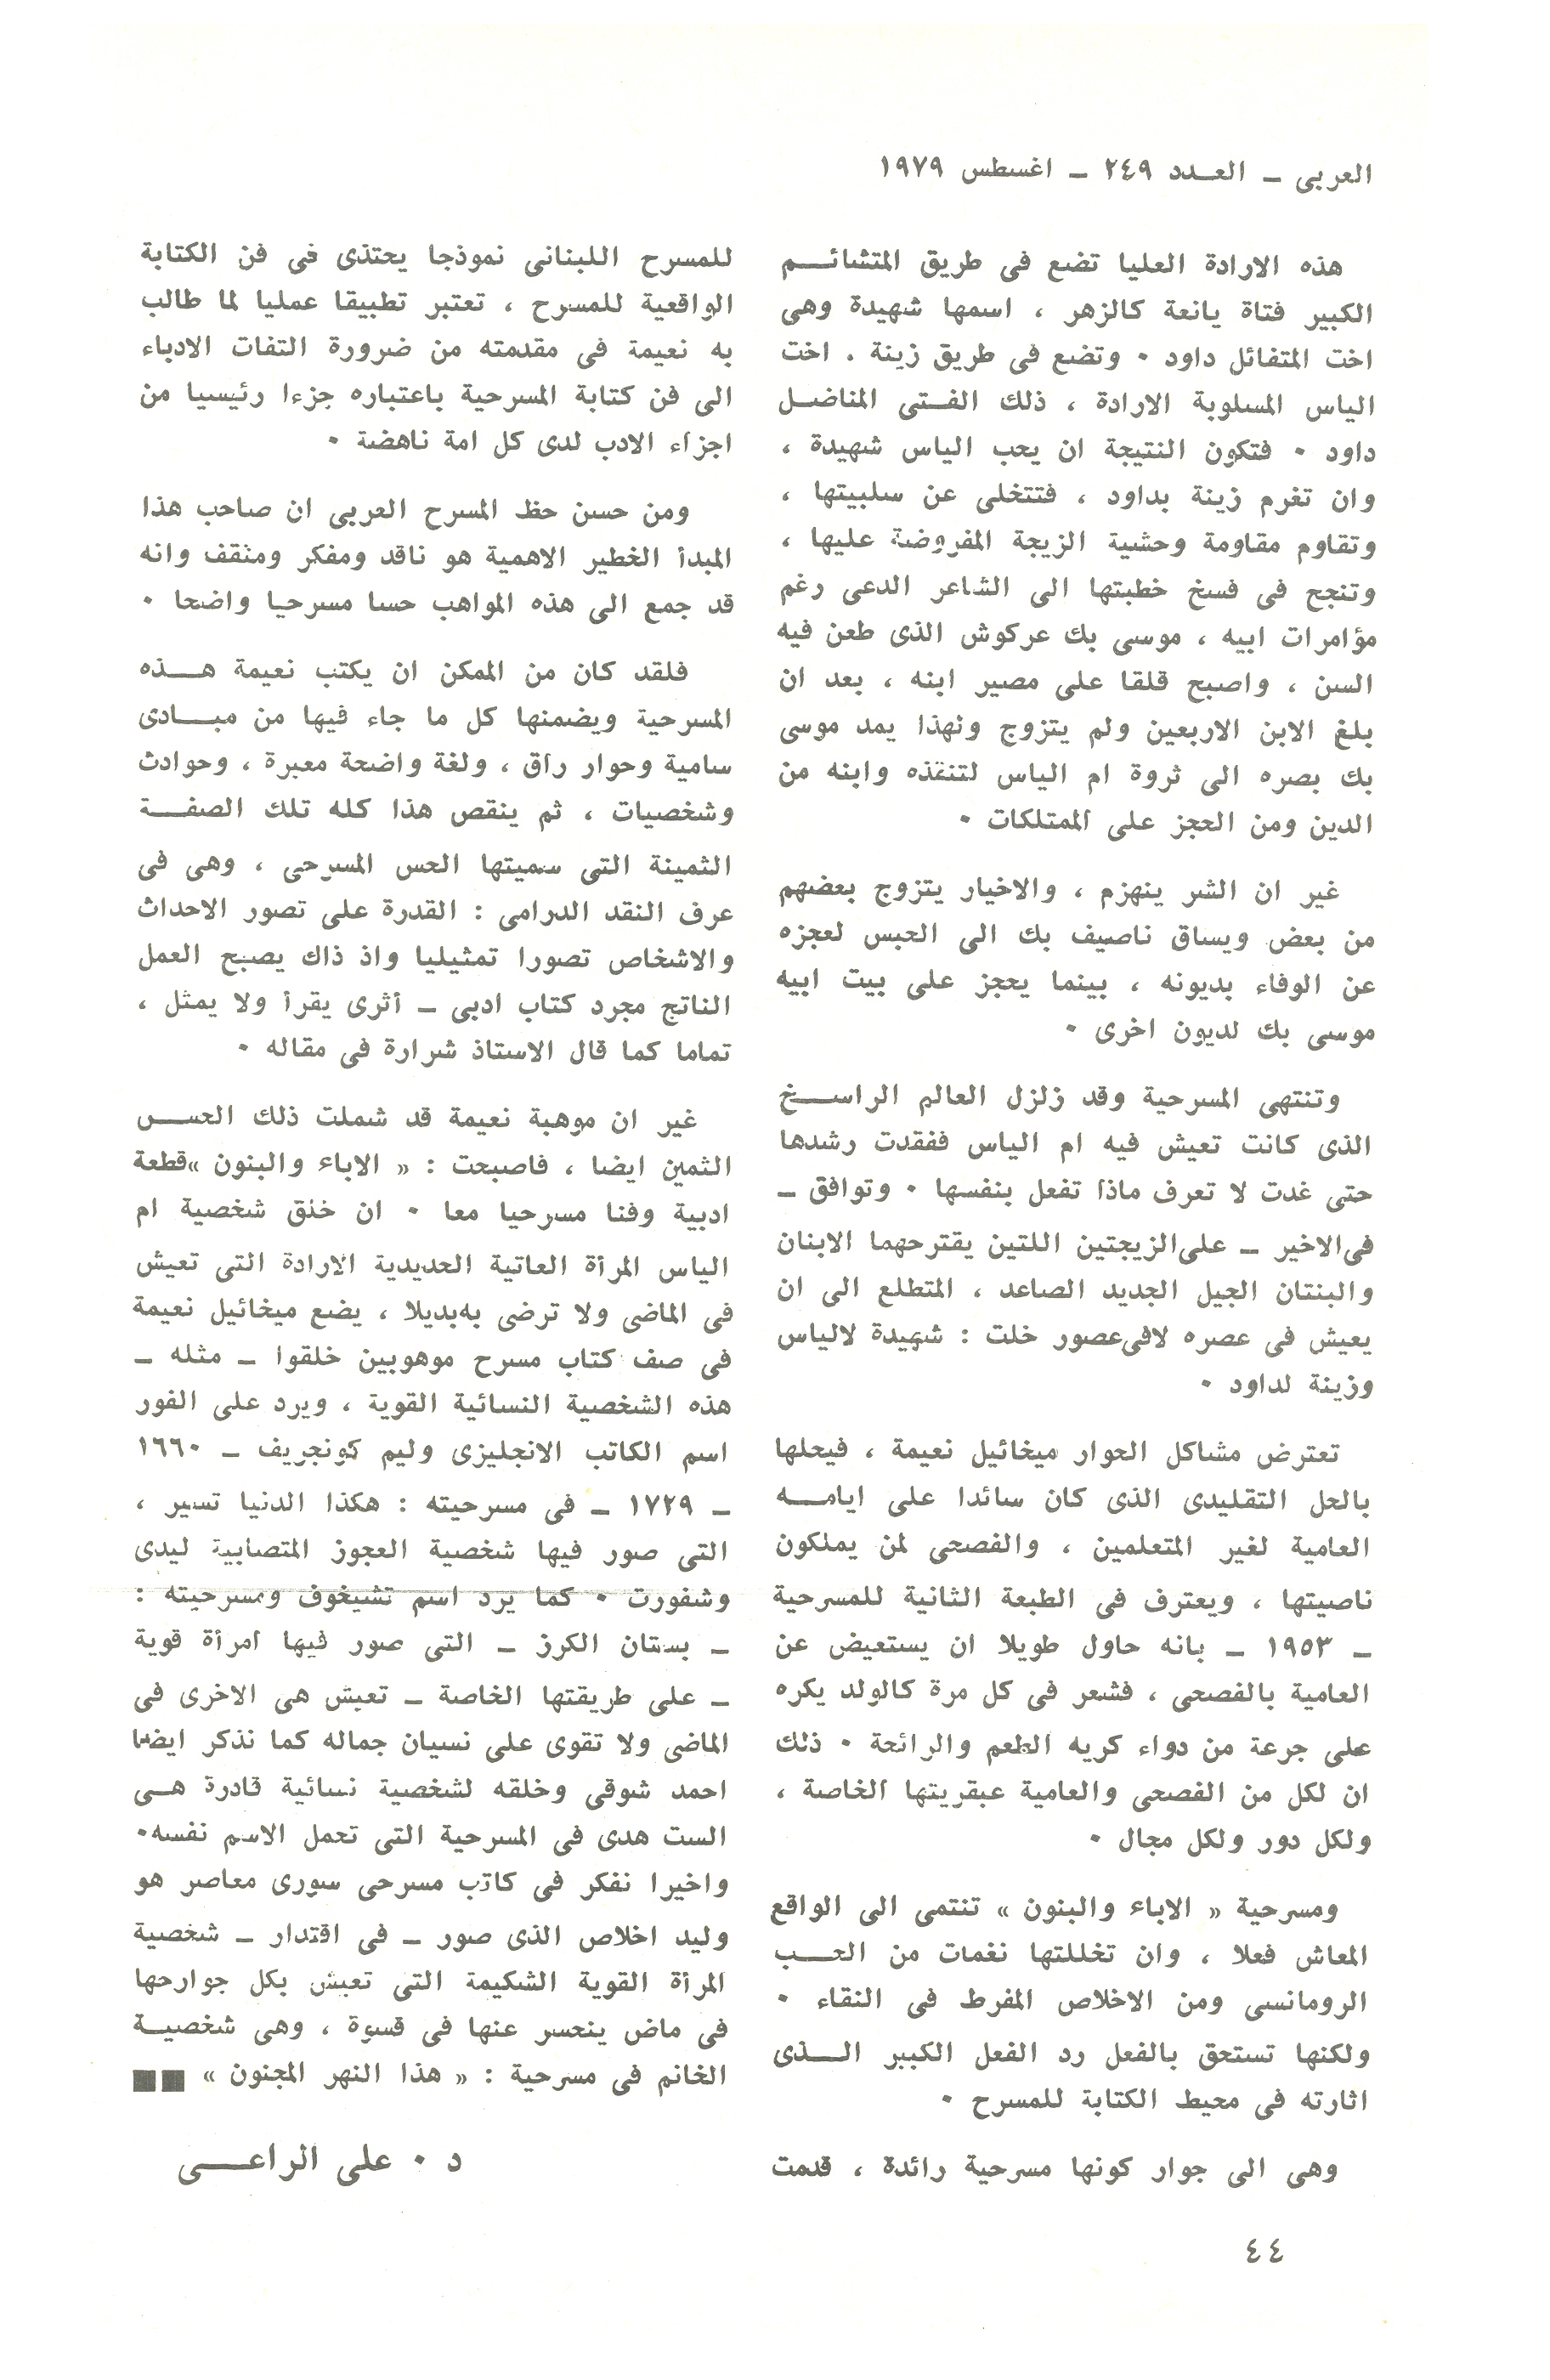 العربى – العـدد ٢٤٩ – اغسطس ١٩٧٩
هذه الارادة العليا تضع فى طريق المتشائـم
الكبير فتاة يانعة كالزهر ، اسمها شهيدة وهى
اخت المتفائل داود ٠ وتضع فى طريق زينة . اخت
الياس المسلوبة الارادة ، ذلك الفـتى المناضـل
داود ٠ فتكون النتيجة ان يحب الياس شهيدة ،
وان تغرم زينة بداود ، فتتخلى عن سلبيتها ،
وتقاوم مقاومة وحشية الزيجة المفروضة عليها ،
وتنجح فى فسخ خطبتها الى الشاعر الدعى رغم
مؤامرات ابيه ، موسى بك عركوش الذى طعن فيه
السن ، واصبح قلقا على مصير ابنه ، بعد ان
بلغ الابن الاربعين ولم يتزوج ولهذا يمد موسى
بك بصره الى ثروة ام الياس لتنقذه وابنه من
الدين ومن الحجز على الممتلكات ٠
غير ان الشر ينهزم ، والاخيار يتزوج بعضهم
من بعض ويساق ناصيف بك الى الحبس لعجزه
عن الوفاء بديونه ، بينما يحجز على بيت ابيه
موسى بك لديون اخرى ٠
وتنتهى المسرحية وقد زلزل العالم الراسـخ
الذى كانت تعيش فيه ام الياس ففقدت رشدها
حتى غدت لا تعرف ماذا تفعل بنفسها ٠ وتوافق –
فى الاخير – على الزيجتين اللتين يقترحهما الابنان
والبنتان الجيل الجديد الصاعد ، المتطلع الى ان
يعيش فى عصره لافى عصور خلت : شهيدة لالياس
وزينة لداود ٠
تعترض مشاكل الحوار ميخائيل نعيمة ، فيحلها
بالحل التقليدى الذى كان سائدا على ايامـه
العامية لغير المتعلمين ، والفصحى لمن يملكون
ناصيتها ، ويعترف فى الطبعة الثانية للمسرحية
– ١٩٥٣ – بانه حاول طويلا ان يستعيض عن
العامية بالفصحى ، فشعر فى كل مرة كالولد يكره
على جرعة من دواء كريه الطعم والرائحة ٠ ذلك
ان لكل من الفصحى والعامية عبقريتها الخاصة ،
ولكل دور ولكل مجال ٠
ومسرحية « الاباء والبنون » تنتمى الى الواقع
المعاش فعلا ، وان تخللتها نغمات من الحـب
الرومانسى ومن الاخلاص المفرط فى النقاء ٠
ولكنها تستحق بالفعل رد الفعل الكبير الـذى
اثارته فى محيط الكتابة للمسرح ٠
وهى الى جوار كونها مسرحية رائدة ، قدمت
للمسرح اللبنانى نموذجا يحتذى فى فن الكتابة
الواقعية للمسرح ، تعتبر تطبيقا عمليا لما طالب
به نعيمة فى مقدمته من ضرورة التفات الادباء
الى فن كتابة المسرحية باعتباره جزءا رئيسيا من
اجزاء الادب لدى كل امة ناهضة ٠
ومن حسن حظ المسرح العربى ان صاحب هذا
المبدأ الخطير الاهمية هو ناقد ومفكر ومثقف وانه
قد جمع الى هذه المواهب حسا مسرحيا واضحا ٠
فلقد كان من الممكن ان يكتب نعيمة هـذه
المسرحية ويضمنها كل ما جاء فيها من مبـادى
سامية وحوار راق ، ولغة واضحة معبرة ، وحوادث
وشخصيات ، ثم ينقص هذا كله تلك الصفـة
الثمينة التى سميتها الحس المسرحى ، وهى فى
عرف النقد الدرامى : القدرة على تصور الاحداث
والاشخاص تصورا تمثيليا واذ ذاك يصبح العمل
الناتج مجرد كتاب ادبى – أثرى يقرأ ولا يمثل ،
تماما كما قال الاستاذ شرارة فى مقاله ٠
غير ان موهبة نعيمة قد شملت ذلك الحـس
الثمين ايضا ، فاصبحت : « الاباء والبنون »قطعة
ادبية وفنا مسرحيا معا ٠ ان خلق شخصية ام
الياس المرأة العاتية الحديدية الارادة التى تعيش
فى الماضى ولا ترضى به بديلا ، يضع ميخائيل نعيمة
فى صف كتاب مسرح موهوبين خلقوا – مثله –
هذه الشخصية النسائية القوية ، ويرد على الفور
اسم الكاتب الانجليزى وليم كونجريف – ١٦٦٠
– ١٧٢٩ – فى مسرحيته : هكذا الدنيا تسير ،
التى صور فيها شخصية العجوز المتصابية ليدى
وشفورت ٠ كما يرد اسم تشيخوف ومسرحيته :
– بستان الكرز – التى صور فيها امرأة قوية
– على طريقتها الخاصة – تعيش هى الاخرى فى
الماضى ولا تقوى على نسيان جماله كما نذكر ايضا
احمد شوقى وخلقه لشخصية نسائية قادرة هـى
الست هدى فى المسرحية التى تحمل الاسم نفسه٠
واخيرا نفكر فى كاتب مسرحى سورى معاصر هو
وليد اخلاص الذى صور – فى اقتدار – شخصية
المرأة القوية الشكيمة التى تعيش بكل جوارحها
فى ماض ينحسر عنها فى قسوة ، وهى شخصيـة
الخانم فى مسرحية : « هذا النهر المجنون » ■■
د ٠ على الراعـى
٤٤